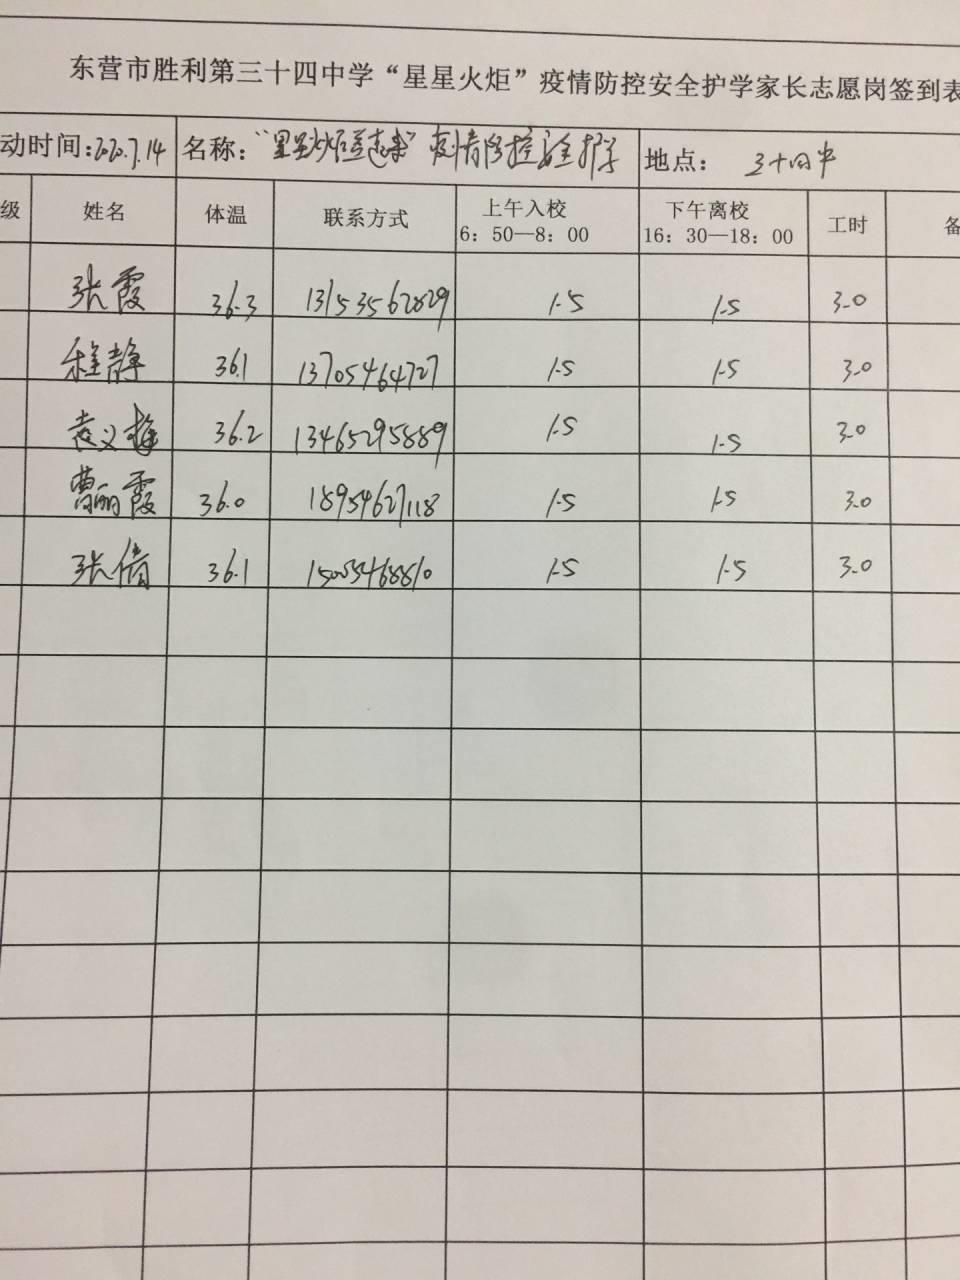 东营市胜利第三十四中学“星星火炬”疫情防控安全护学家长志愿岗签到表
动时间:2020.7.14 名称: 疫情防控安全护学 地点: 三十四中
级 姓名 体温 联系方式 上午入校 6:50—8:00 下午离校 16:30—18:00 工时 备
张霞 36.3 13153562829 1.5 1.5 3.0
程静 36.1 13705464727 1.5 1.5 3.0
袁义梅 36.2 13465295889 1.5 1.5 3.0
曹丽霞 36.0 18954627118 1.5 1.5 3.0
张倩 36.1 1.5 1.5 3.0